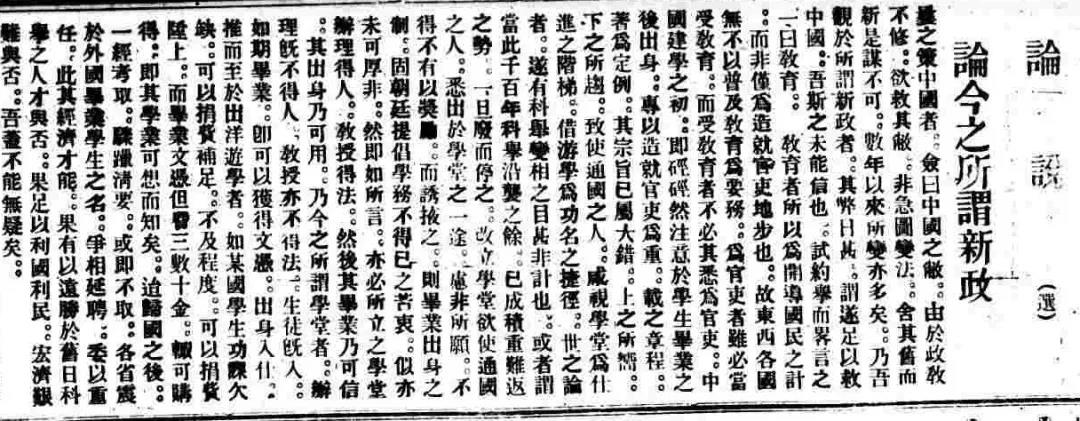 論說
(選)
論今之所謂新政
曩之策中國者。僉曰中國之敝。由於政敎
不修。欲救其敝。非急圖變法。舍其舊而
新是謀不可。數年以來所變亦多矣。乃吾
觀於所謂新政者。其弊日甚。謂遂足以救
中國。吾斯之未能信也。試約舉而畧言之
一曰敎育。敎育者所以為開導國民之計
而非僅為造就官吏地步也。故東西各國
無不以普及敎育為要務。為官吏者雖必當
受敎育。而受敎育者不必其悉為官吏。中
國建學之初。即硜硜然注意於學生畢業之
後出身。專以造就官吏為重。載之章程。
著為定例。其宗旨已屬大錯。上之所嚮。
下之所趨。致使通國之人。咸視學堂為仕
進之階梯。借游學為功名之捷徑。世之論
者。遂有科舉變相之目甚非計也。或者謂
當此千百年科舉沿襲之餘。已成積重難返
之勢。一旦廢而停之。改立學堂欲使通國
之人。悉出於學堂之一途。慮非所願。不
得不有以獎勵。而誘掖之。則畢業出身之
制。固朝廷提倡學務不得已之苦衷。似亦
未可厚非。然即如所言。亦必所立之學堂
辦理得人。敎授得法。然後其畢業乃可信
其出身乃可用。乃今之所謂學堂者。辦
理旣不得人。敎授亦不得法。一生徒旣入。
如期畢業。卽可以獲得文憑。出身入仕。
推而至於出洋遊學者。如某國學生功課欠
缺。可以捐費補足。不及程度。可以捐費
陞上。而畢業文憑但費三數十金。輒可購
得。即其學業可想而知矣。迨歸國之後。
一經考取。驟躐淸要。或即不取。各省震
於外國畢業學生之名。爭相延聘。委以重
任。此其經濟才能。果有以遠勝於舊日科
舉之人才與否。果足以利國利民。宏濟艱
難與否。吾蓋不能無疑矣。